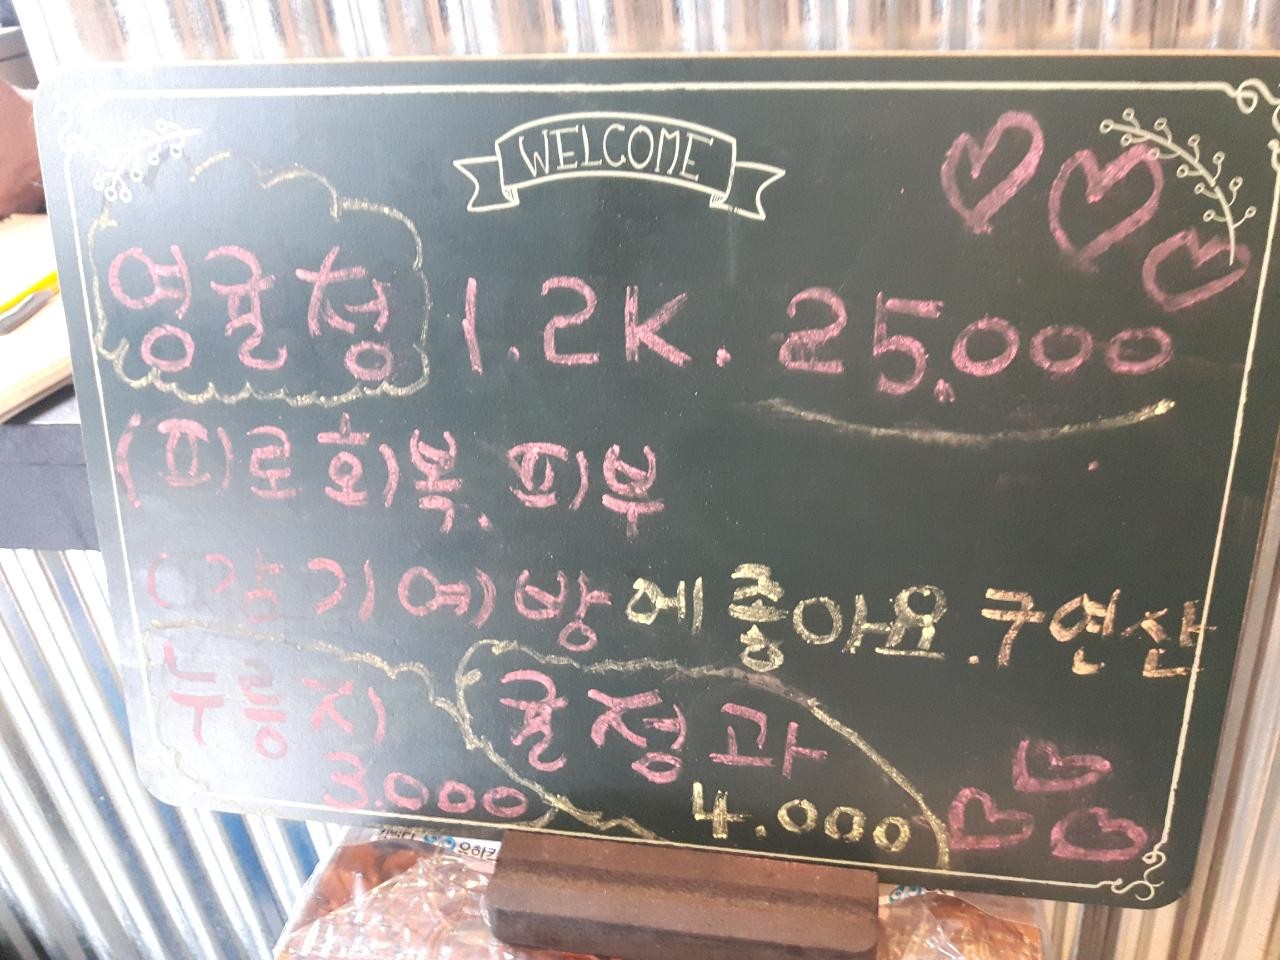 WELCOME
영귤청 1.2K. 25.000
(피)로 회)복. 피)부
(감기예)방에 좋아요. 구연산
누룽지 귤정과
3.000 4.000